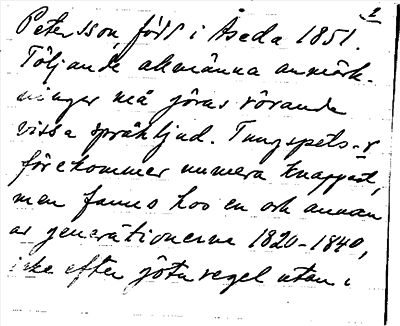 2
Petersson, född i Åseda 1851.
Följande allmänna anmärk-
ningar må göras rörande
vissa språkljud. Tungspets-r
förekommer numera knappast,
men fanns hos en och annan
av generationerna 1820-1840,
icke efter göta regel utan i